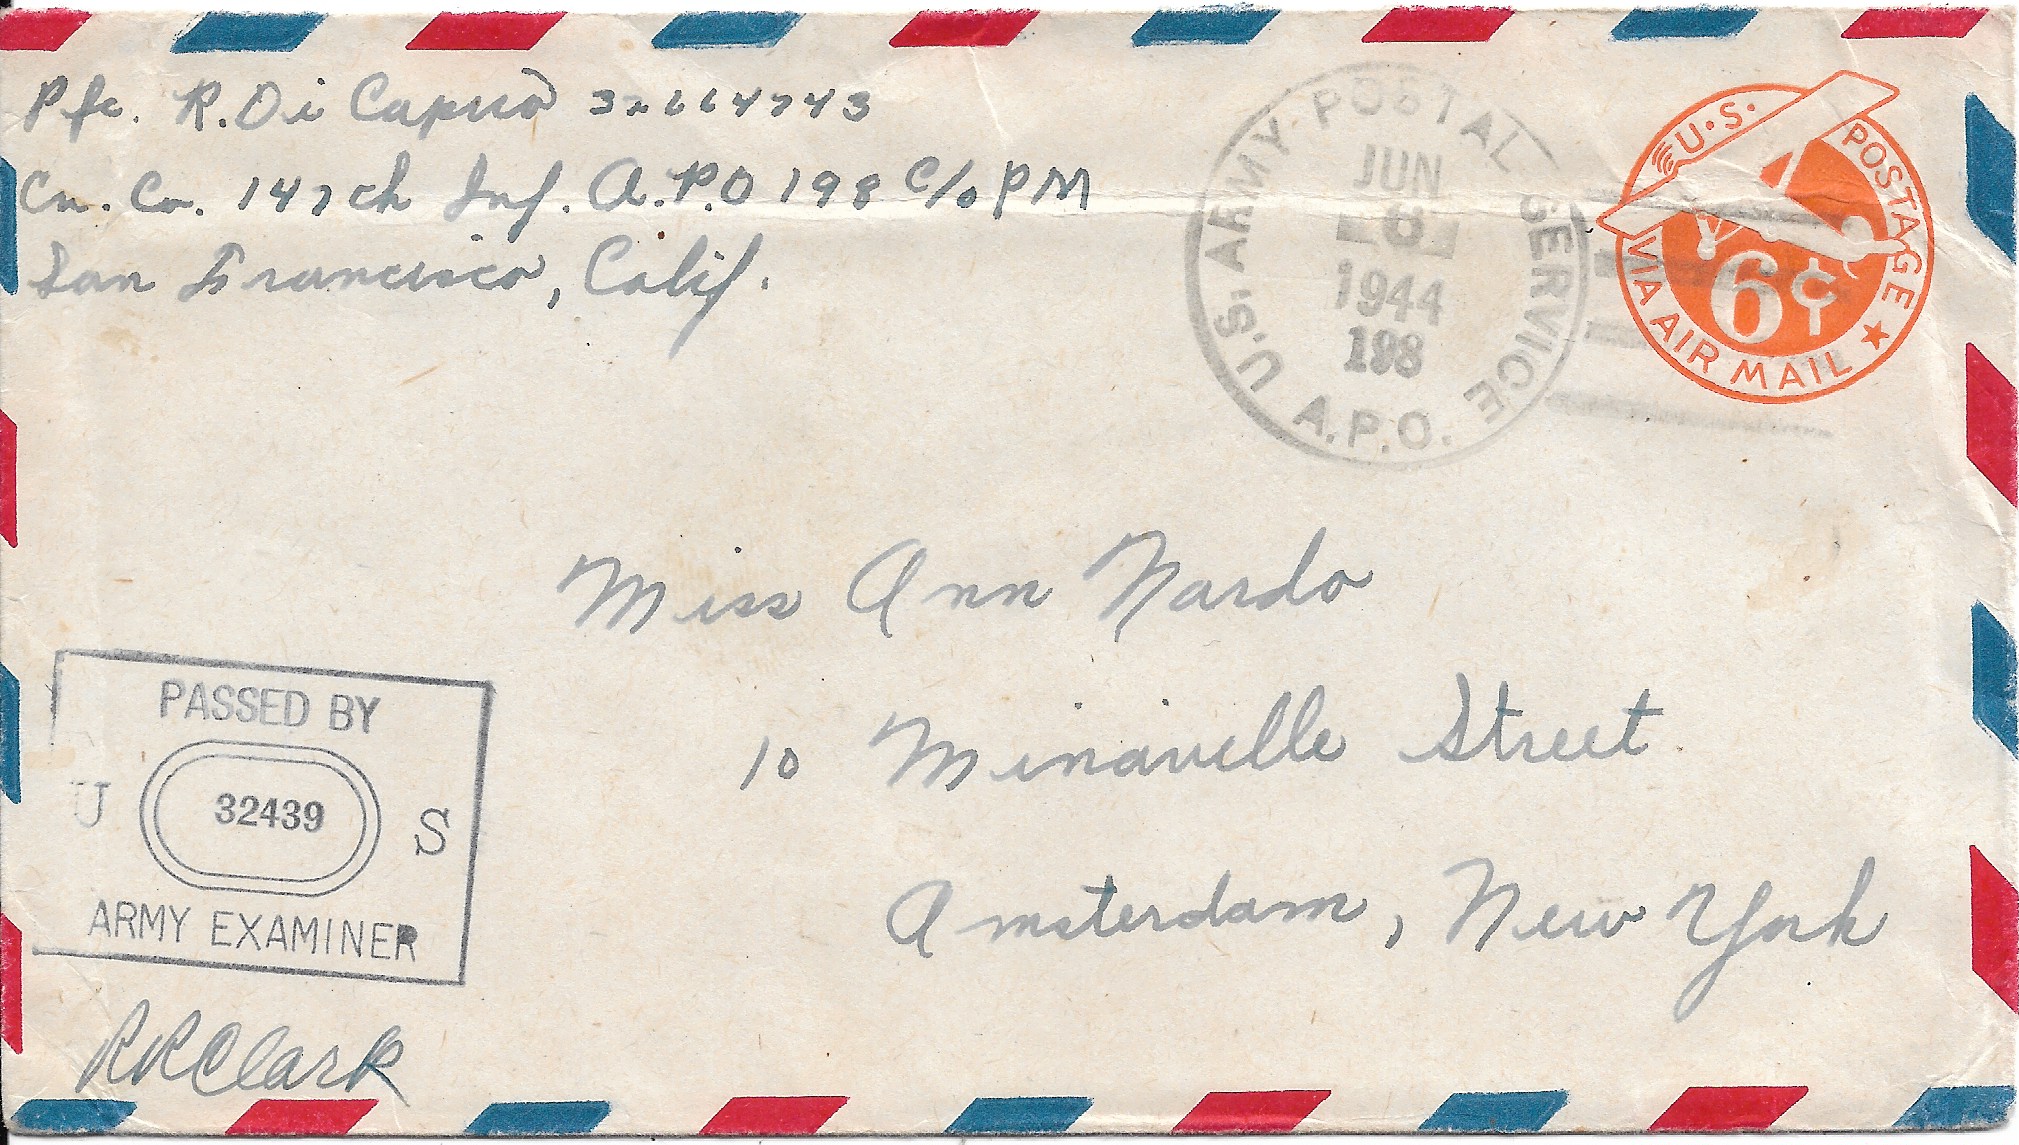 Pfc. R. Di Capuo 32664743
Cn. Co. 147th Inf. A.P.O 198 C/o PM
San Francisco, Calif.
U.S. ARMY POSTAL SERVICE
JUN
6
1944
198
A.P.O.
U.S. POSTAGE
6¢
VIA AIR MAIL
Miss Ann Nardo
10 Minaville Street
Amsterdam, New York
PASSED BY
U 32439 S
ARMY EXAMINER
RRClark